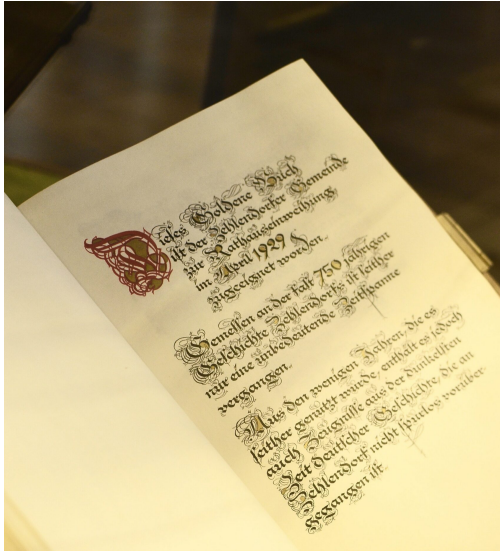 Dieses Goldene Buch
ist der Zehlendorfer Gemeinde
zur Rathauseinweihung
im April 1929
zugeeignet worden.
Gemessen an der fast 750 jährigen
Geschichte Zehlendorfs ist seither
nur eine unbedeutende Zeitspanne
vergangen.
Aus den wenigen Jahren, die es
seither genützt wurde, enthält es jedoch
auch Zeugnisse aus der dunkelsten
Zeit deutscher Geschichte, die an
Zehlendorf nicht spurlos vorüber-
gegangen ist.